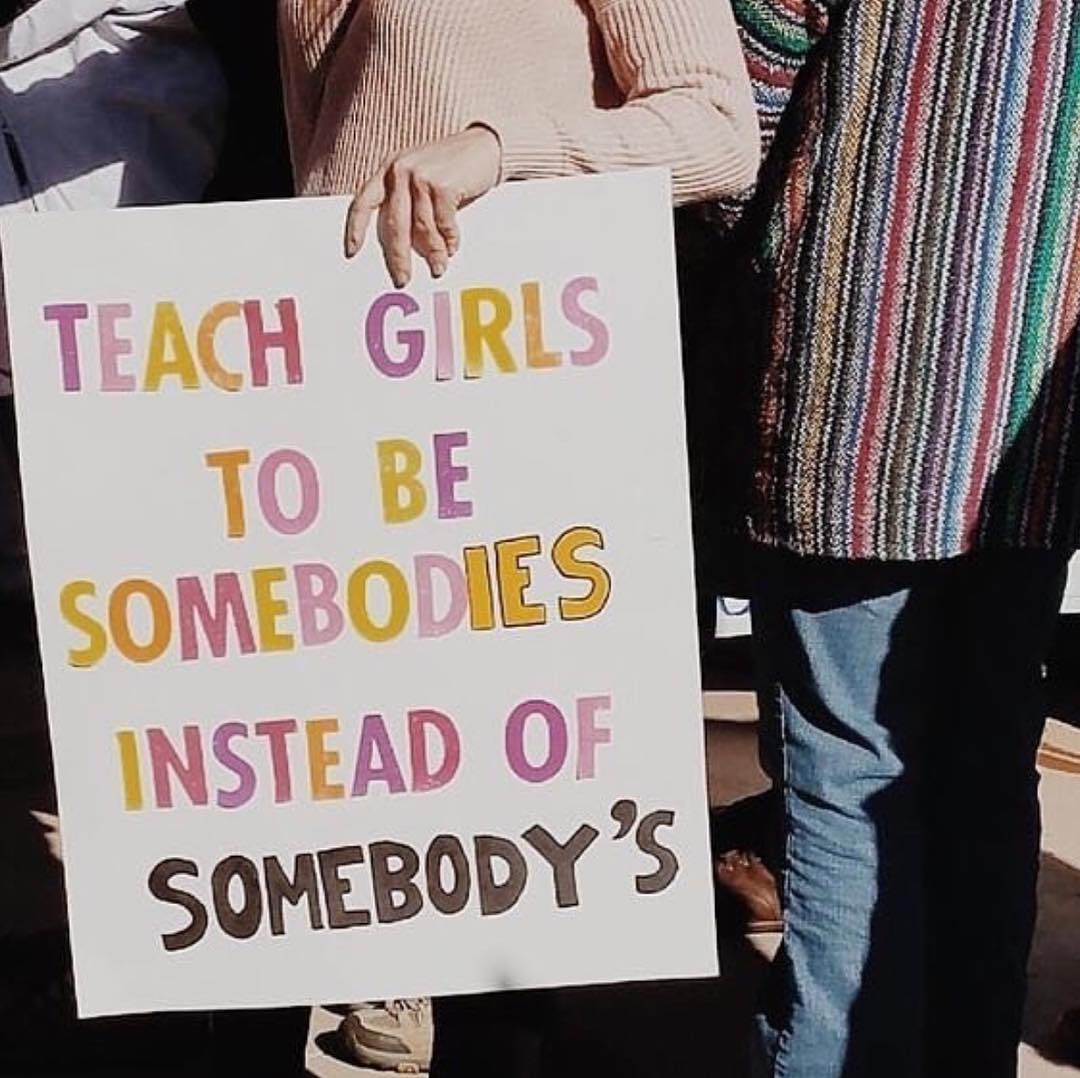 TEACH GIRLS
TO BE
SOMEBODIES
INSTEAD OF
SOMEBODY'S